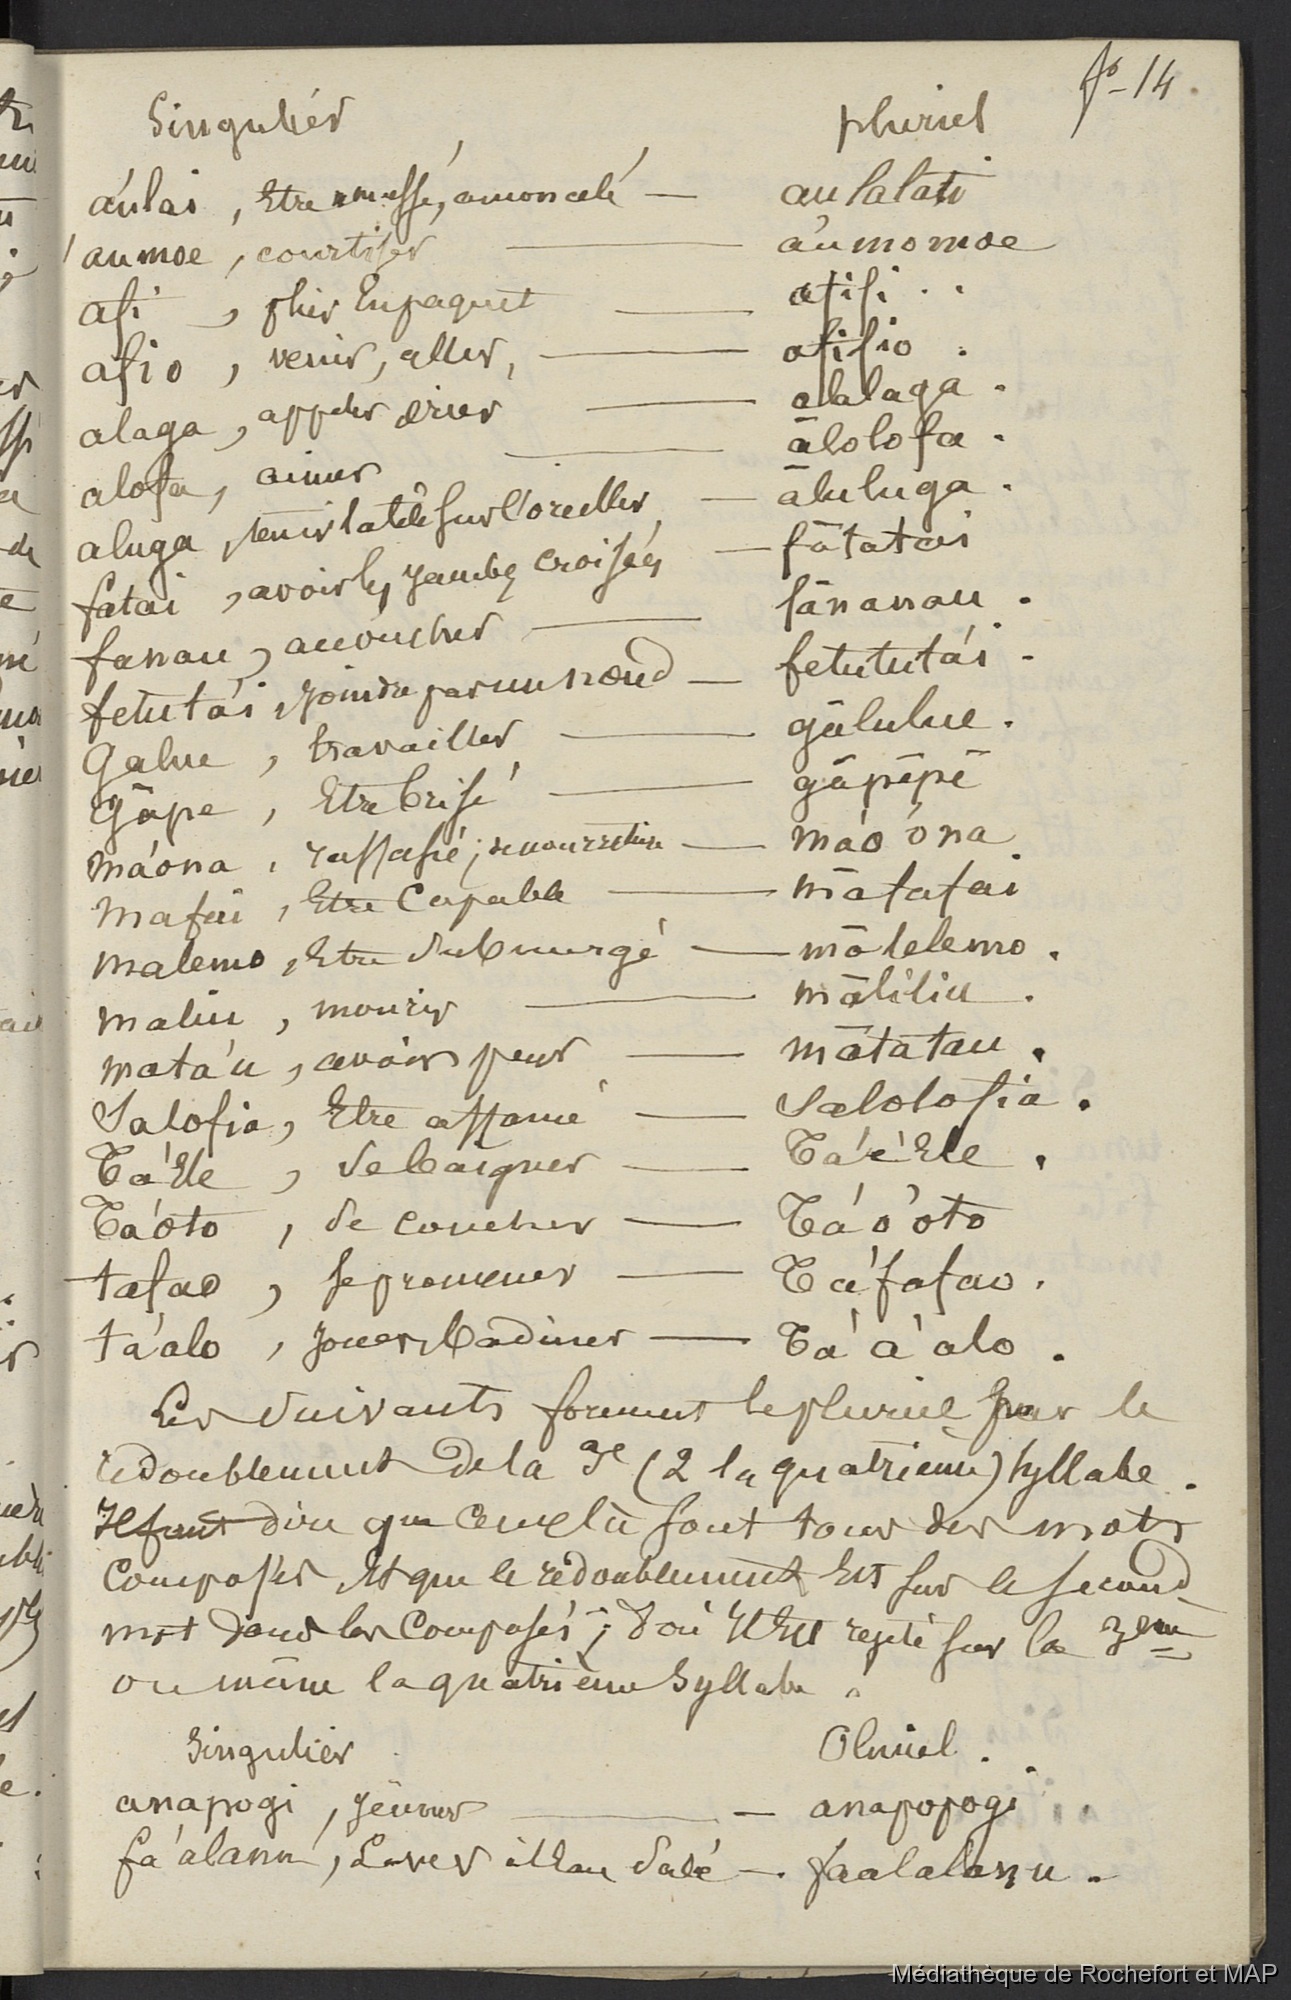 fo - 14
Singulier pluriel
aúlai, Etre amassé, amoncelé — aulalati
aumoe, courtiser — aúmomoe
afi, plier Enpaquet — afifi . .
afio, venir, aller, — afifio .
alaga, appeler crier — alalaga .
alofa, aimer — ālolofa .
aluga, tenir latête sur l'oreiller — āluluga .
fatai, avoir les jambes croisées — fātatai
fanau, accoucher — fānanau .
fetutái, joindre par un nœud — fetututái .
Galue, travailler — gālulue .
Gāpe, Etre brisé — gāpēpē
máona, rassasié; de nourriture — máo'ona
mafai, Etre Capable — māfafai
malemo, Etre submergé — mālelemo .
maliu, mourir — māliliu .
matáu, avoir peur — mātatau .
Salofia, Etre affamé — Salolofia .
Tá'Ele, se baigner — Tá'é'Ele .
Tá'oto, se coucher — Tá'o'oto
tafao, se promener — Táfafao .
tá'alo, jouer, badiner — Tá'a'alo .
Les suivants forment le pluriel par le
redoublement de la 3e (2 la quatrième) syllabe .
Il faut dire que ceux là sont tous des mots
composés et que le redoublement Est sur le second
mot dans les composés; d'où il Est rejeté sur la 3eme
ou même la quatrième syllabe .
Singulier Pluriel .
anapogi, jeûner — anapopogi .
fa'alanu, Laver à l'eau salé — faalalanu .
Médiathèque de Rochefort et MAP